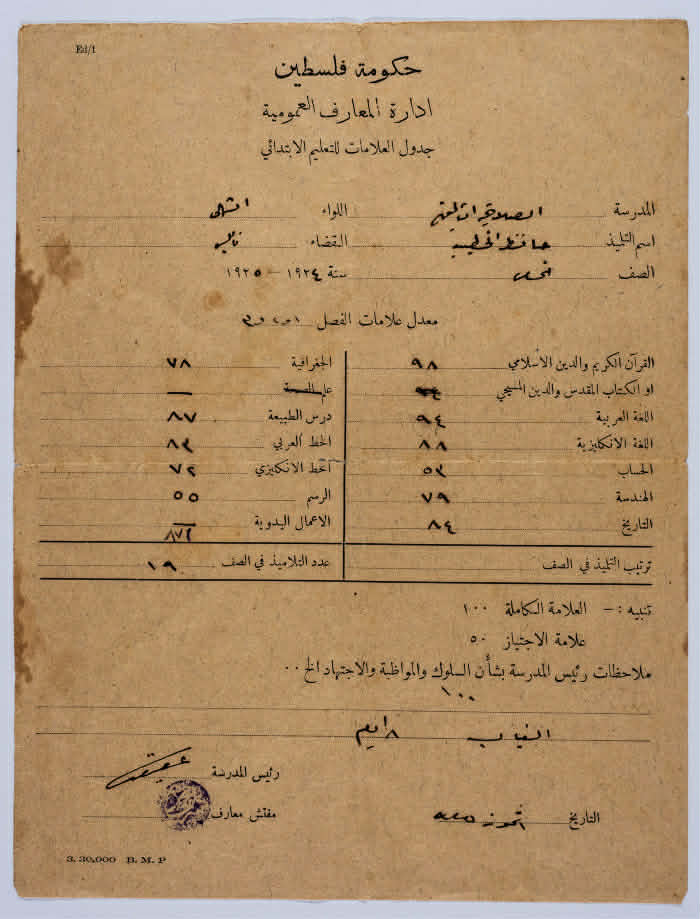 Ed/1
حكومة فلسطين
ادارة المعارف العمومية
جدول العلامات للتعليم الابتدائي
المدرسة الصلاحية اللواء
اسم التلميذ حافظ القضاء نابلس
الصف سنة ١٩٢٤ – ١٩٢٥
معدل علامات الفصل ١ و ٢ و ٣
القرآن الكريم والدين الأسلامي ٩٨ الجغرافية ٧٨
او الكتاب المقدس والدين المسيحي علم الصحة —
اللغة العربية ٩٤ درس الطبيعة ٨٧
اللغة الانكليزية ٨٨ الخط العربي ٨٣
الحساب ٥٣ الخط الانكليزي ٧٢
الهندسة ٧٩ الرسم ٥٥
التاريخ ٨٤ الاعمال اليدوية —
٨٧١
ترتيب التلميذ في الصف عدد التلاميذ في الصف ١٩
تنبيه :– العلامة الكاملة ١٠٠
علامة الاجتياز ٥٠
ملاحظات رئيس المدرسة بشأن السلوك والمواظبة والاجتهاد الخ ..
١٠٠
الغياب ٨ ايام
رئيس المدرسة
التاريخ تموز مفتش معارف
3. 30,000 B. M. P